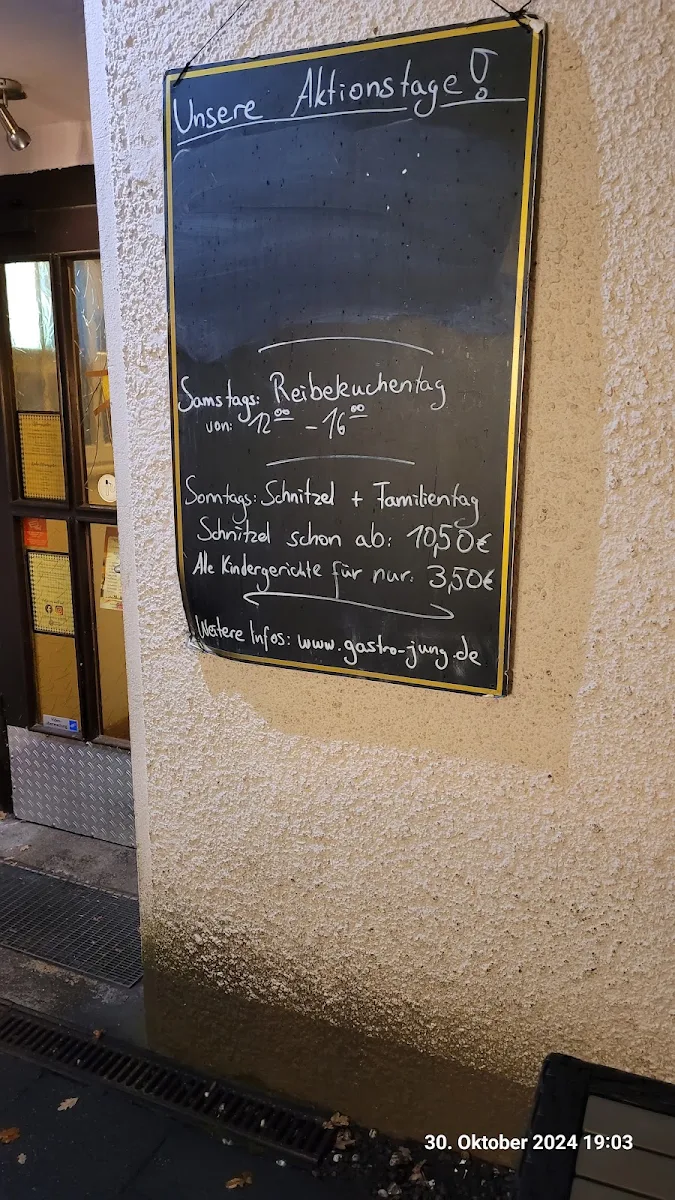 Unsere Aktionstage!
Samstags: Reibekuchentag
von: 12⁰⁰ - 16⁰⁰
Sonntags: Schnitzel + Familientag
Schnitzel schon ab: 10,50€
Alle Kindergerichte für nur: 3,50€
Weitere Infos: www.gastro-jung.de
30. Oktober 2024 19:03